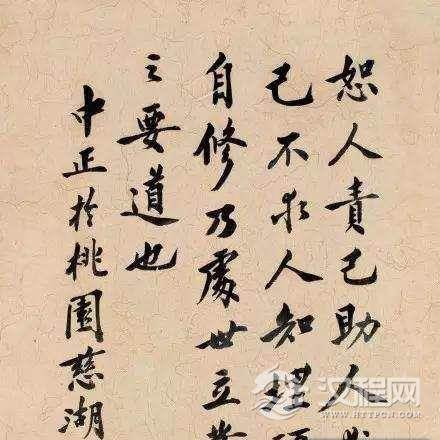 恕人責己助人
己不求人知謹
自修乃處世立
之要道也
中正於桃園慈湖
汉程网
WWW.HTTPCN.COM